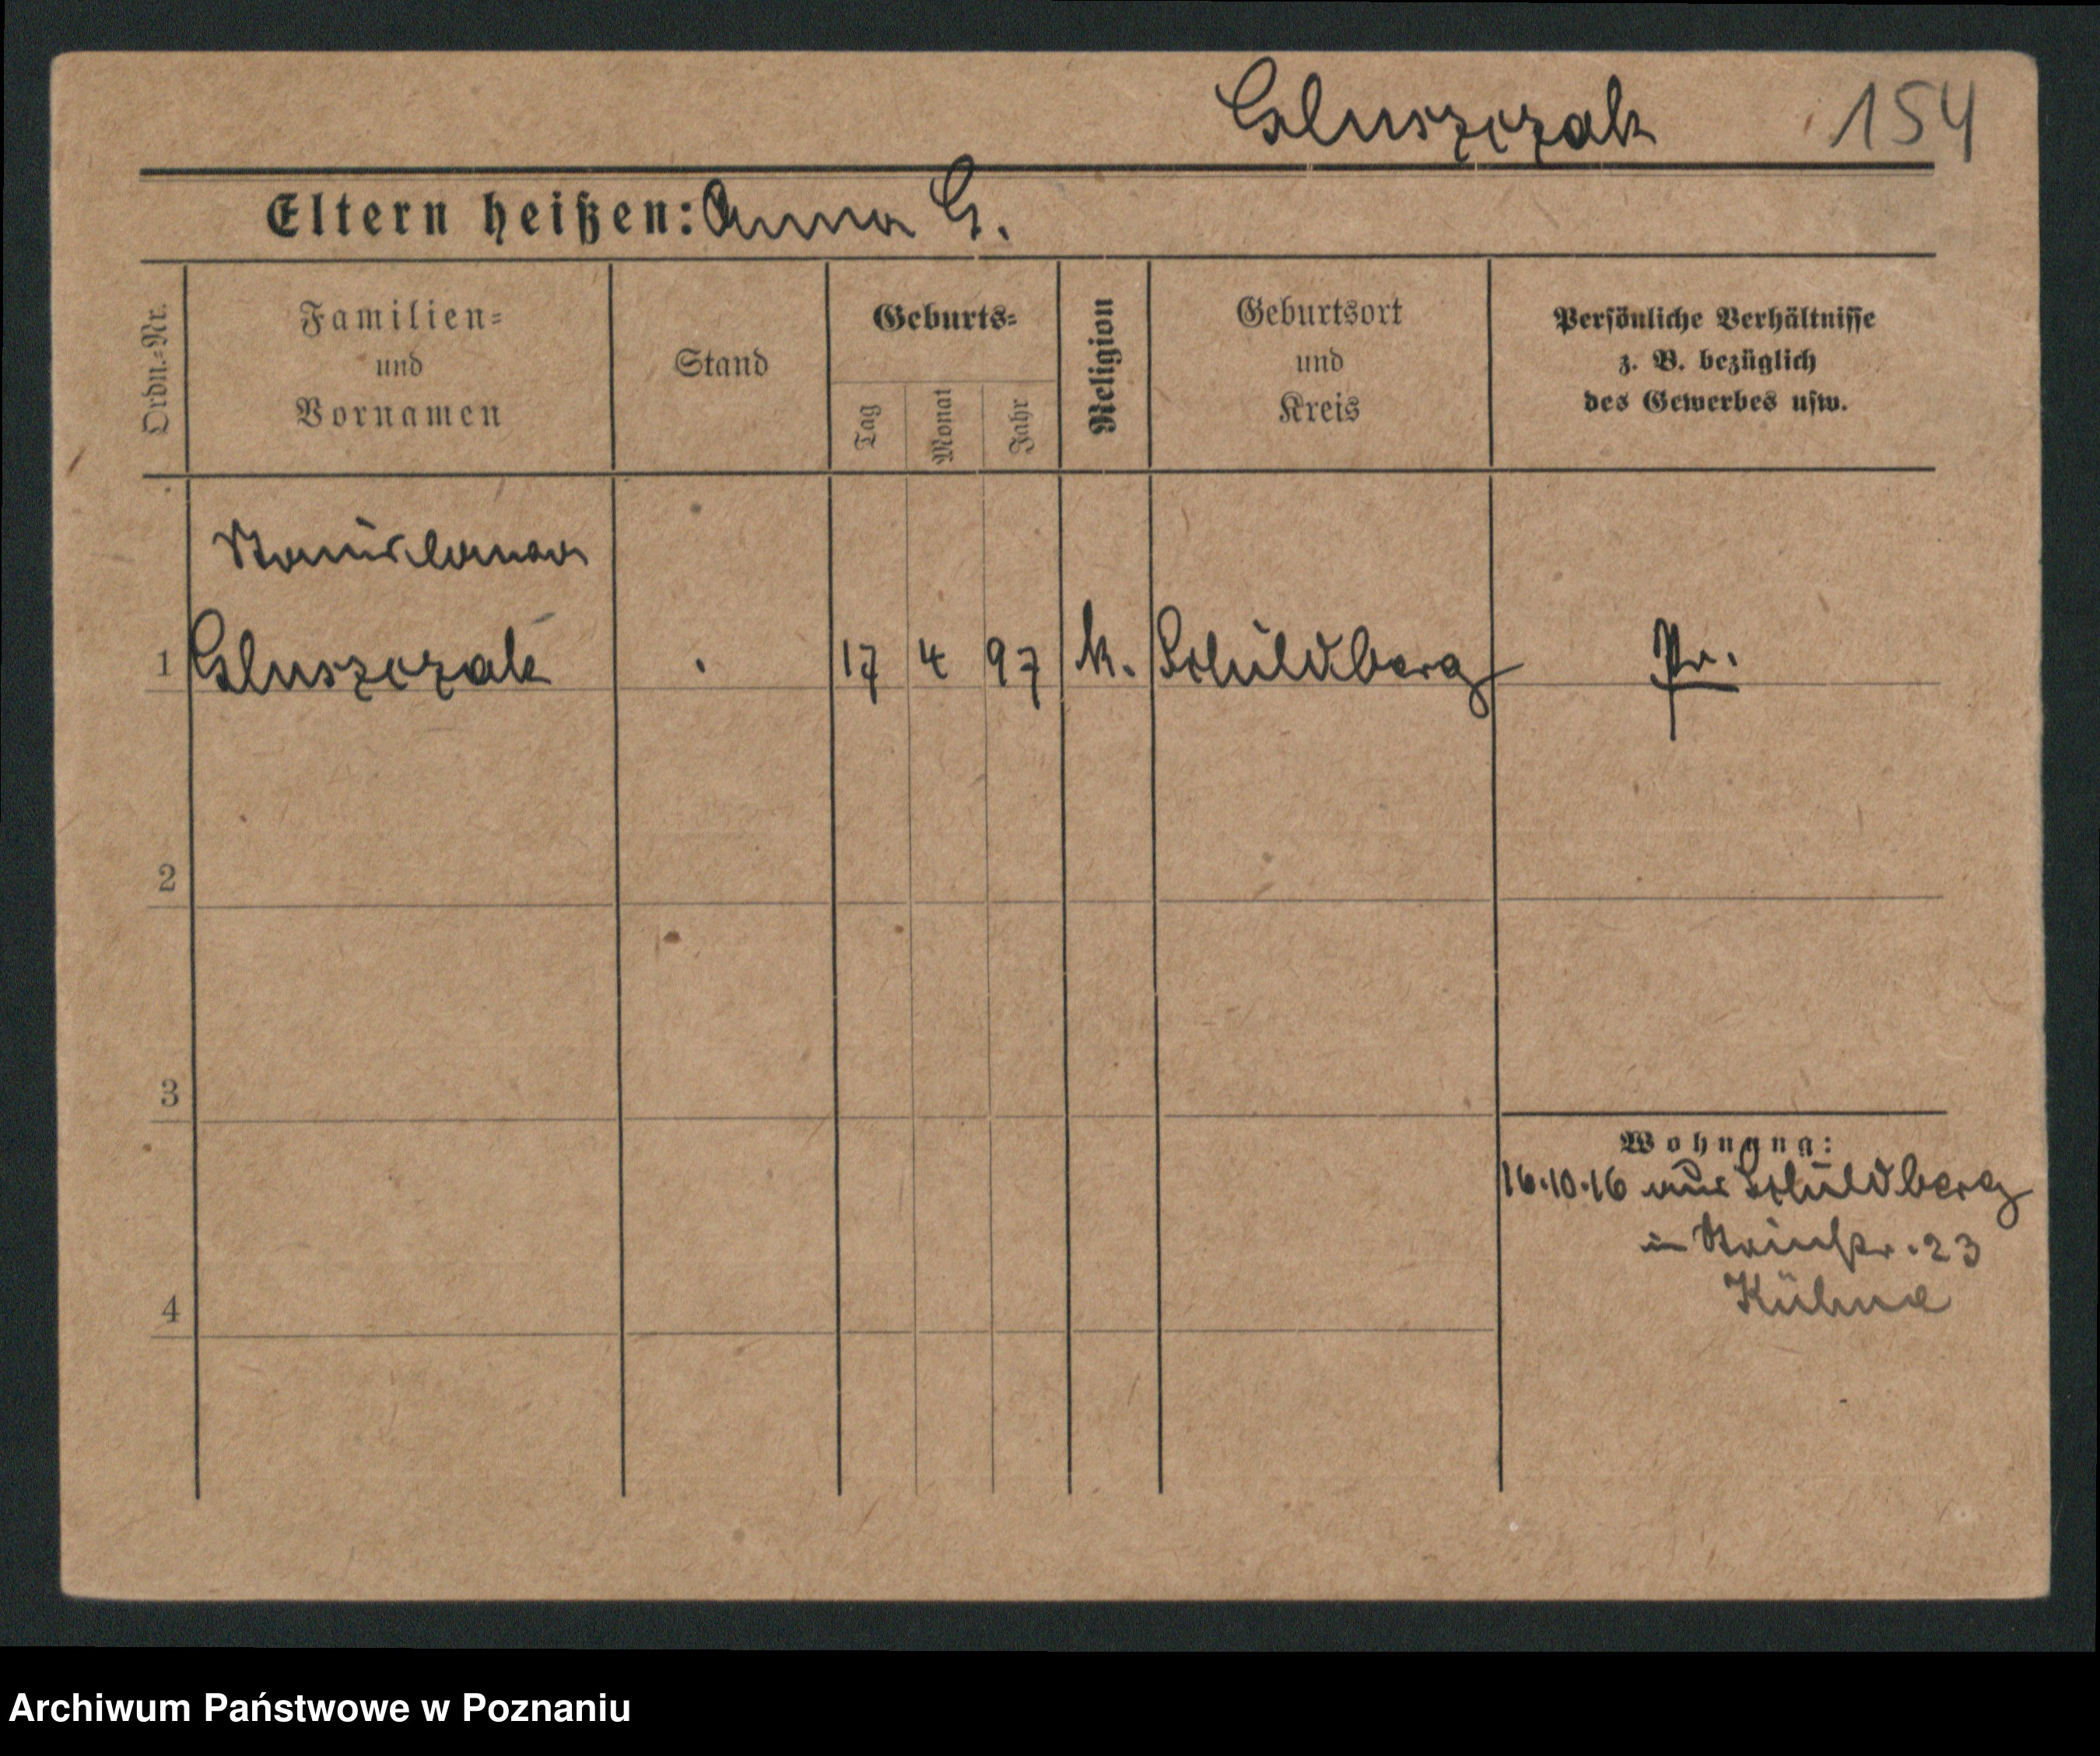 Gluszczak 154
Eltern heißen: Anna G.
Ordn.-Nr.
Familien-
und
Vornamen
Stand
Geburts-
Tag
Monat
Jahr
Religion
Geburtsort
und
Kreis
Persönliche Verhältnisse
z. B. bezüglich
des Gewerbes usw.
Stanislawa
1 Gluszczak 17 4 97 k. Schildberg Pr.
2
3
Wohnung:
16.10.16 aus Schildberg
in Steinstr. 23
4 Kühne
Archiwum Państwowe w Poznaniu